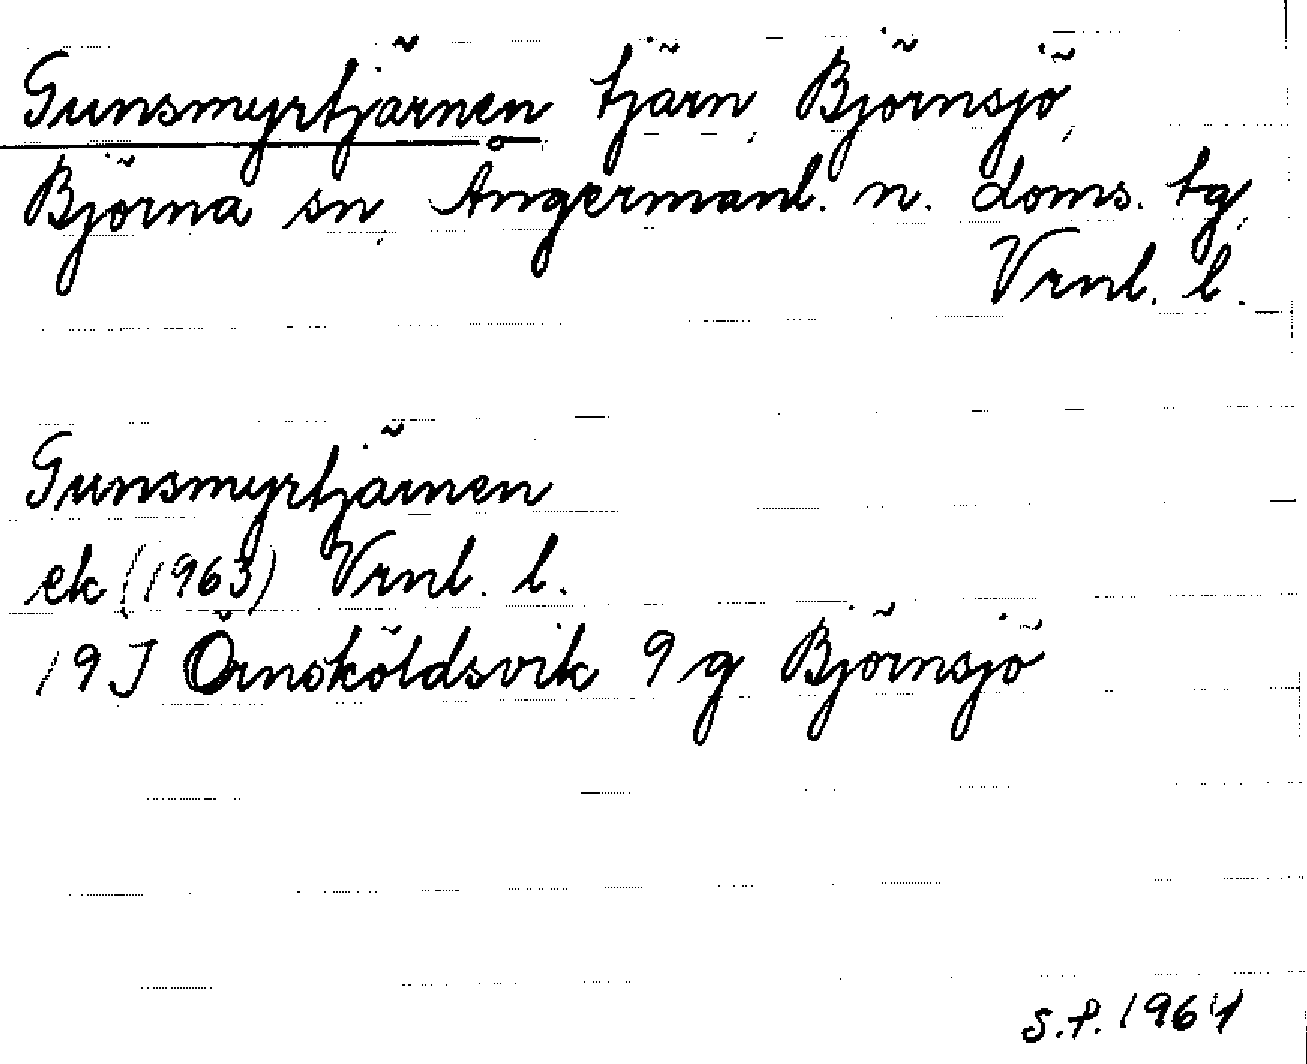 Gunsmyrtjärnen tjärn, Björnsjö,
Björna sn, Ångermanl. n. doms. tg,
Vrnl. l.
Gunsmyrtjärnen
ek (1963) Vrnl. l.
19J Örnsköldsvik 9 g Björnsjö
S.P. 1964